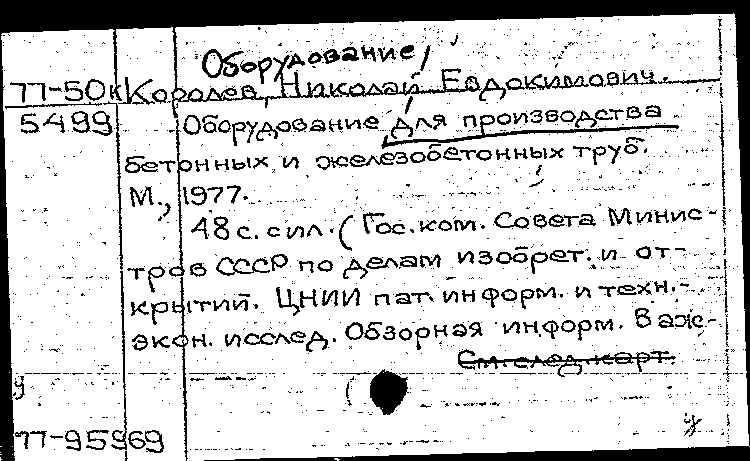 Оборудование
77-50к Королев, Николай Евдокимович.
5499 Оборудование для производства
бетонных и железобетонных труб.
М., 1977.
48 с. с ил. (Гос. ком. Совета Минис-
тров СССР по делам изобрет. и от-
крытий. ЦНИИ пат. информ. и техн.-
экон. исслед. Обзорная информ. Важ-
См. след. карт.
77-95969